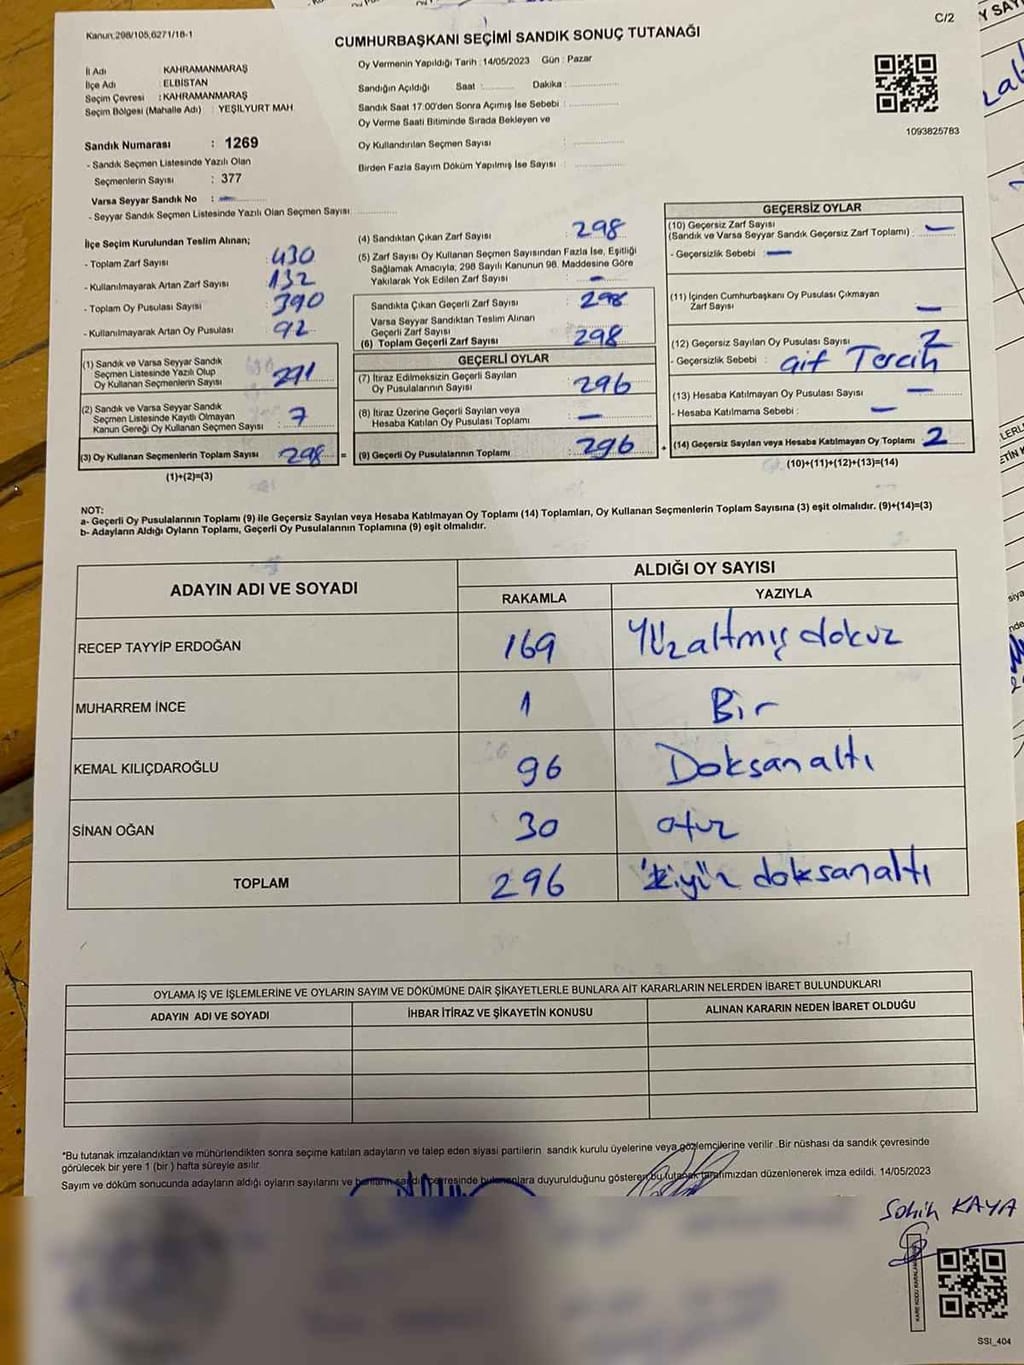 Kanun:298/105,6271/18-1
C/2
CUMHURBAŞKANI SEÇİMİ SANDIK SONUÇ TUTANAĞI
İl Adı KAHRAMANMARAŞ
İlçe Adı : ELBİSTAN
Seçim Çevresi : KAHRAMANMARAŞ
Seçim Bölgesi (Mahalle Adı) : YEŞİLYURT MAH
Sandık Numarası : 1269
- Sandık Seçmen Listesinde Yazılı Olan
Seçmenlerin Sayısı : 377
Varsa Seyyar Sandık No : -
- Seyyar Sandık Seçmen Listesinde Yazılı Olan Seçmen Sayısı
Oy Vermenin Yapıldığı Tarih : 14/05/2023 Gün : Pazar
Sandığın Açıldığı Saat : Dakika :
Sandık Saat 17:00'den Sonra Açımış İse Sebebi :
Oy Verme Saati Bitiminde Sırada Bekleyen ve
Oy Kullandırılan Seçmen Sayısı :
Birden Fazla Sayım Döküm Yapılmış İse Sayısı :
1093825783
İlçe Seçim Kurulundan Teslim Alınan;
- Toplam Zarf Sayısı : 430
- Kullanılmayarak Artan Zarf Sayısı : 132
- Toplam Oy Pusulası Sayısı : 390
- Kullanılmayarak Artan Oy Pusulası : 92
(1) Sandık ve Varsa Seyyar Sandık
Seçmen Listesinde Yazılı Olup
Oy Kullanan Seçmenlerin Sayısı : 291
(2) Sandık ve Varsa Seyyar Sandık
Seçmen Listesinde Kayıtlı Olmayan
Kanun Gereği Oy Kullanan Seçmen Sayısı : 7
(3) Oy Kullanan Seçmenlerin Toplam Sayısı : 298 =
(1)+(2)=(3)
(4) Sandıktan Çıkan Zarf Sayısı : 298
(5) Zarf Sayısı Oy Kullanan Seçmen Sayısından Fazla İse, Eşitliği
Sağlamak Amacıyla; 298 Sayılı Kanunun 98. Maddesine Göre
Yakılarak Yok Edilen Zarf Sayısı : -
Sandıkta Çıkan Geçerli Zarf Sayısı : 298
Varsa Seyyar Sandıktan Teslim Alınan
Geçerli Zarf Sayısı
(6) Toplam Geçerli Zarf Sayısı : 298
GEÇERLİ OYLAR
(7) İtiraz Edilmeksizin Geçerli Sayılan
Oy Pusulalarının Sayısı : 296
(8) İtiraz Üzerine Geçerli Sayılan veya
Hesaba Katılan Oy Pusulası Toplamı : -
(9) Geçerli Oy Pusulalarının Toplamı : 296 +
GEÇERSİZ OYLAR
(10) Geçersiz Zarf Sayısı
(Sandık ve Varsa Seyyar Sandık Geçersiz Zarf Toplamı) : -
- Geçersizlik Sebebi : -
(11) İçinden Cumhurbaşkanı Oy Pusulası Çıkmayan
Zarf Sayısı -
(12) Geçersiz Sayılan Oy Pusulası Sayısı : 2
- Geçersizlik Sebebi : Çift Tercih
(13) Hesaba Katılmayan Oy Pusulası Sayısı : -
- Hesaba Katılmama Sebebi : -
(14) Geçersiz Sayılan veya Hesaba Katılmayan Oy Toplamı : 2
(10)+(11)+(12)+(13)=(14)
NOT:
a- Geçerli Oy Pusulalarının Toplamı (9) ile Geçersiz Sayılan veya Hesaba Katılmayan Oy Toplamı (14) Toplamları, Oy Kullanan Seçmenlerin Toplam Sayısına (3) eşit olmalıdır. (9)+(14)=(3)
b- Adayların Aldığı Oyların Toplamı, Geçerli Oy Pusulalarının Toplamına (9) eşit olmalıdır.
ADAYIN ADI VE SOYADI ALDIĞI OY SAYISI
RAKAMLA YAZIYLA
RECEP TAYYİP ERDOĞAN 169 Yüzaltmış dokuz
MUHARREM İNCE 1 Bir
KEMAL KILIÇDAROĞLU 96 Doksanaltı
SİNAN OĞAN 30 otuz
TOPLAM 296 ikiyüz doksanaltı
OYLAMA İŞ VE İŞLEMLERİNE VE OYLARIN SAYIM VE DÖKÜMÜNE DAİR ŞİKAYETLERLE BUNLARA AİT KARARLARIN NELERDEN İBARET BULUNDUKLARI
ADAYIN ADI VE SOYADI İHBAR İTİRAZ VE ŞİKAYETİN KONUSU ALINAN KARARIN NEDEN İBARET OLDUĞU
*Bu tutanak imzalandıktan ve mühürlendikten sonra seçime katılan adayların ve talep eden siyasi partilerin sandık kurulu üyelerine veya gözlemcilerine verilir .Bir nüshası da sandık çevresinde
görülecek bir yere 1 (bir ) hafta süreyle asılır.
Sayım ve döküm sonucunda adayların aldığı oyların sayılarını ve bunların sandık çevresinde bulunanlara duyurulduğunu gösteren bu tutanak tarafımızdan düzenlenerek imza edildi. 14/05/2023
Sahih KAYA
SSI_404